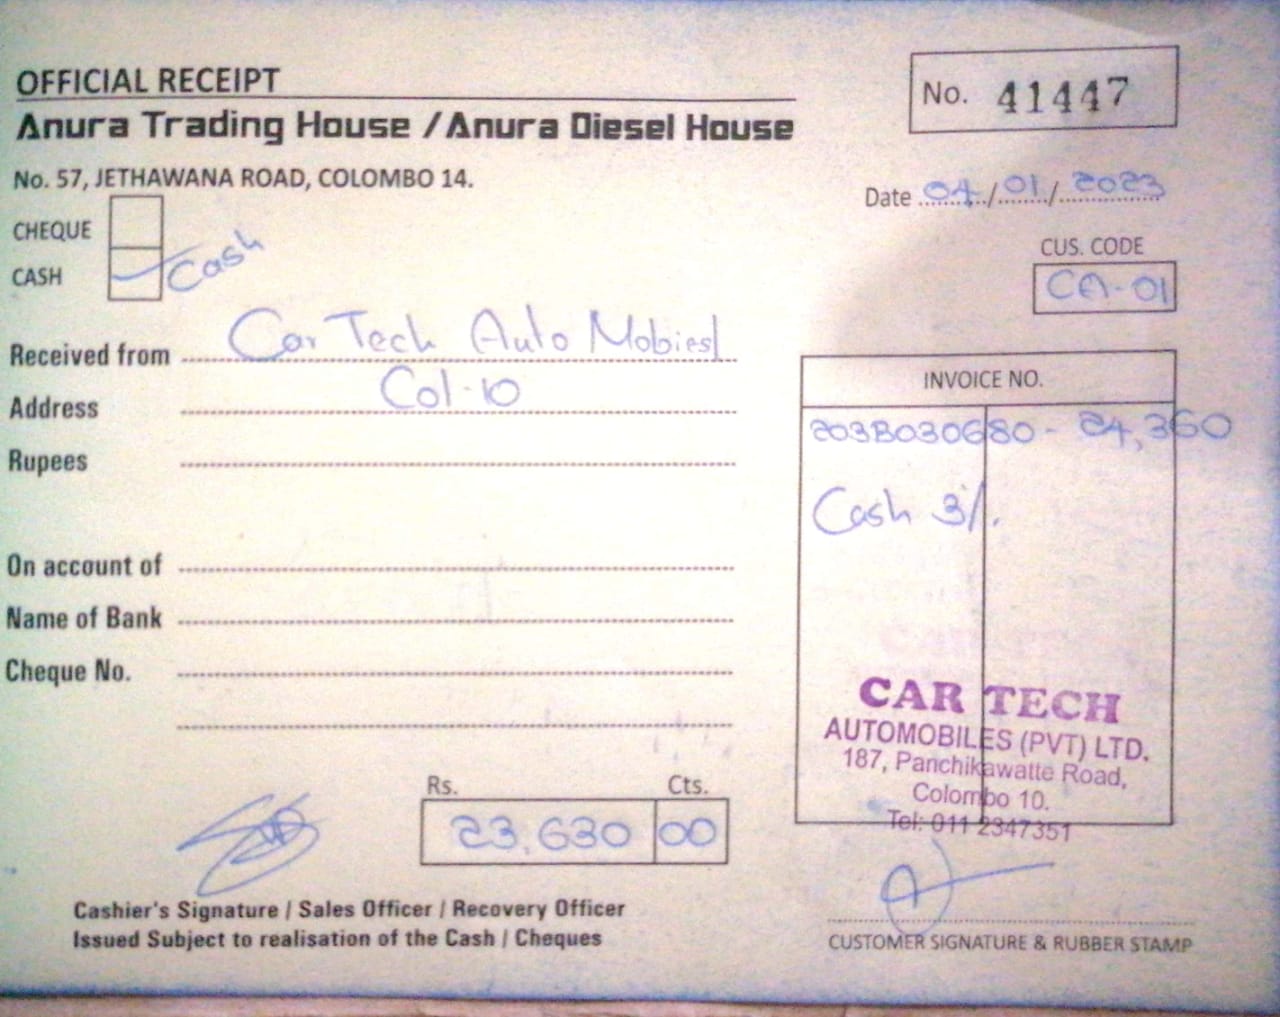 OFFICIAL RECEIPT
Anura Trading House / Anura Diesel House
No. 57, JETHAWANA ROAD, COLOMBO 14.
No. 41447
Date 04/01/2023
CHEQUE
CASH Cash
CUS. CODE
CA-01
Received from Car Tech Auto Mobies
Address Col-10
Rupees
On account of
Name of Bank
Cheque No.
INVOICE NO.
203B030680 - 24,360
Cash 3%.
CAR TECH
AUTOMOBILES (PVT) LTD.
187, Panchikawatte Road,
Colombo 10.
Tel: 011 2347351
Rs. Cts.
23,630 00
Cashier's Signature / Sales Officer / Recovery Officer
Issued Subject to realisation of the Cash / Cheques
CUSTOMER SIGNATURE & RUBBER STAMP